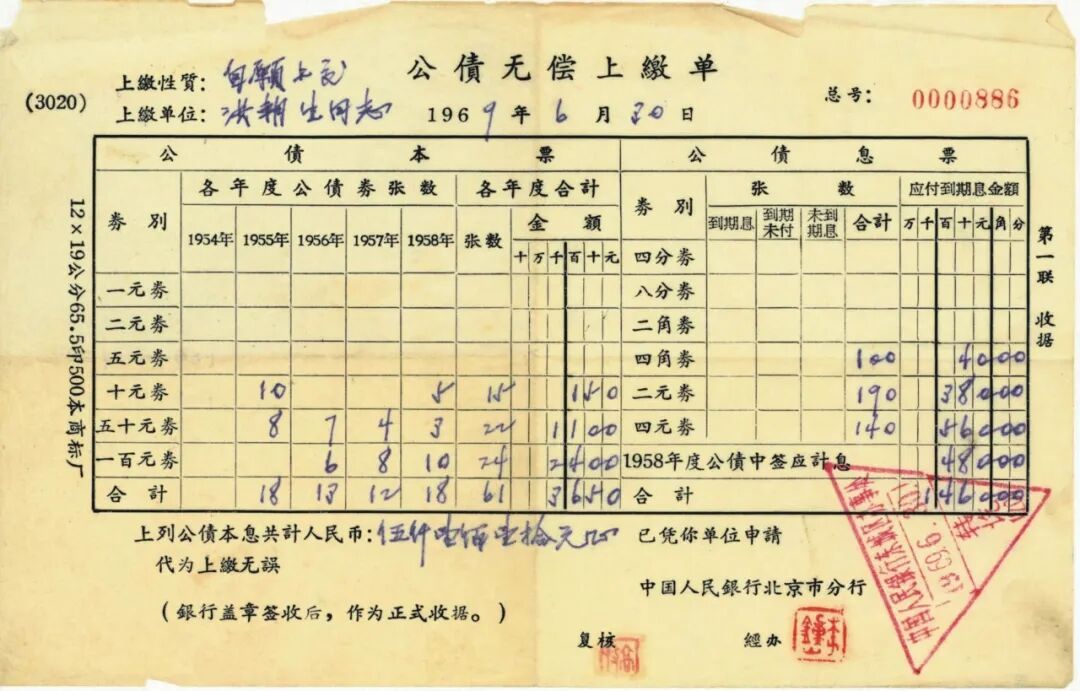 公債无偿上繳单
上繳性質：自願上交
(3020)
上繳单位：洪朔生同志 1969年6月30日
总号：0000886
公債本票 公債息票
各年度公債券张数 各年度合計 券別 张数 应付到期息金額
券別 1954年 1955年 1956年 1957年 1958年 张数 金額 到期息 到期未付 未到期息 合計 万千百十元角分
十万千百十元 四分券
一元券 八分券
二元券 二角券
五元券 四角券 100 4000
十元券 10 5 15 150 二元券 190 38000
五十元券 8 7 4 3 22 1100 四元券 140 56000
一百元券 6 8 10 24 2400 1958年度公債中签应計息 48000
合計 18 13 12 18 61 3650 合計 146000
上列公債本息共計人民币：伍仟壹佰壹拾元正 已凭你单位申請
代为上繳无誤
中国人民銀行北京市分行
(銀行盖章签收后，作为正式收据。)
复核 經办
12×19公分65.5印500本 商标厂
第一联 收据
1969.6.30